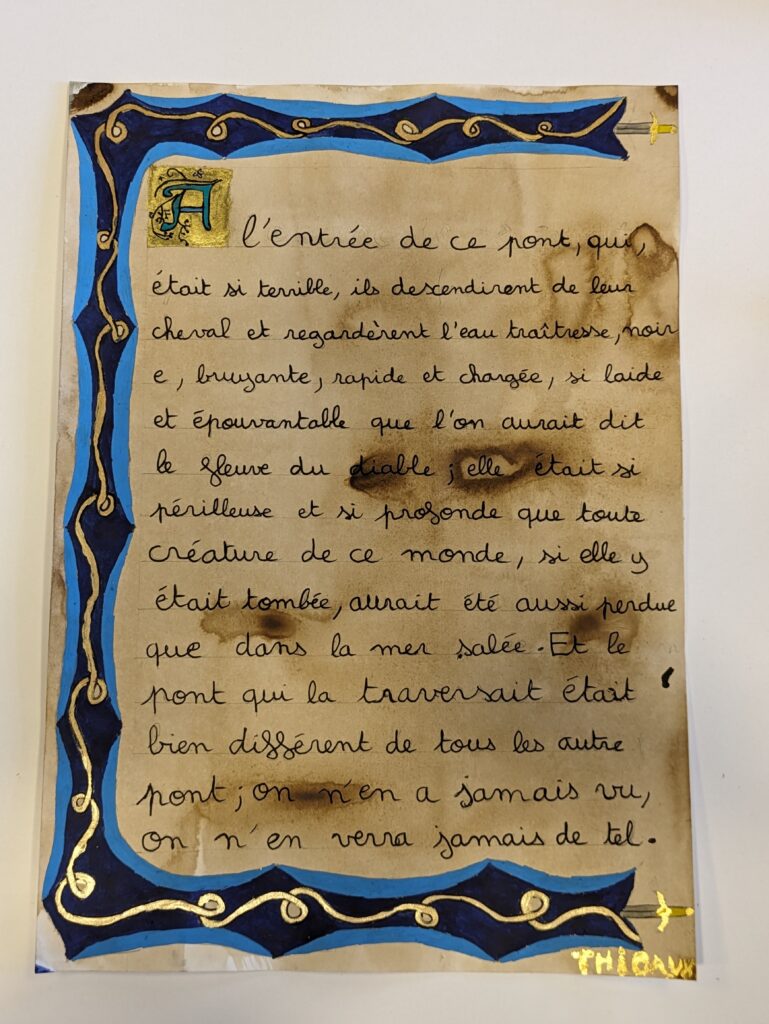 A l'entrée de ce pont, qui,
était si terrible, ils descendirent de leur
cheval et regardèrent l'eau traîtresse, noir
e, bruyante, rapide et chargée, si laide
et épouvantable que l'on aurait dit
le fleuve du diable ; elle était si
périlleuse et si profonde que toute
créature de ce monde, si elle y
était tombée, aurait été aussi perdue
que dans la mer salée. Et le
pont qui la traversait était
bien différent de tous les autre
pont ; on n'en a jamais vu,
on n'en verra jamais de tel.
THIBAUX